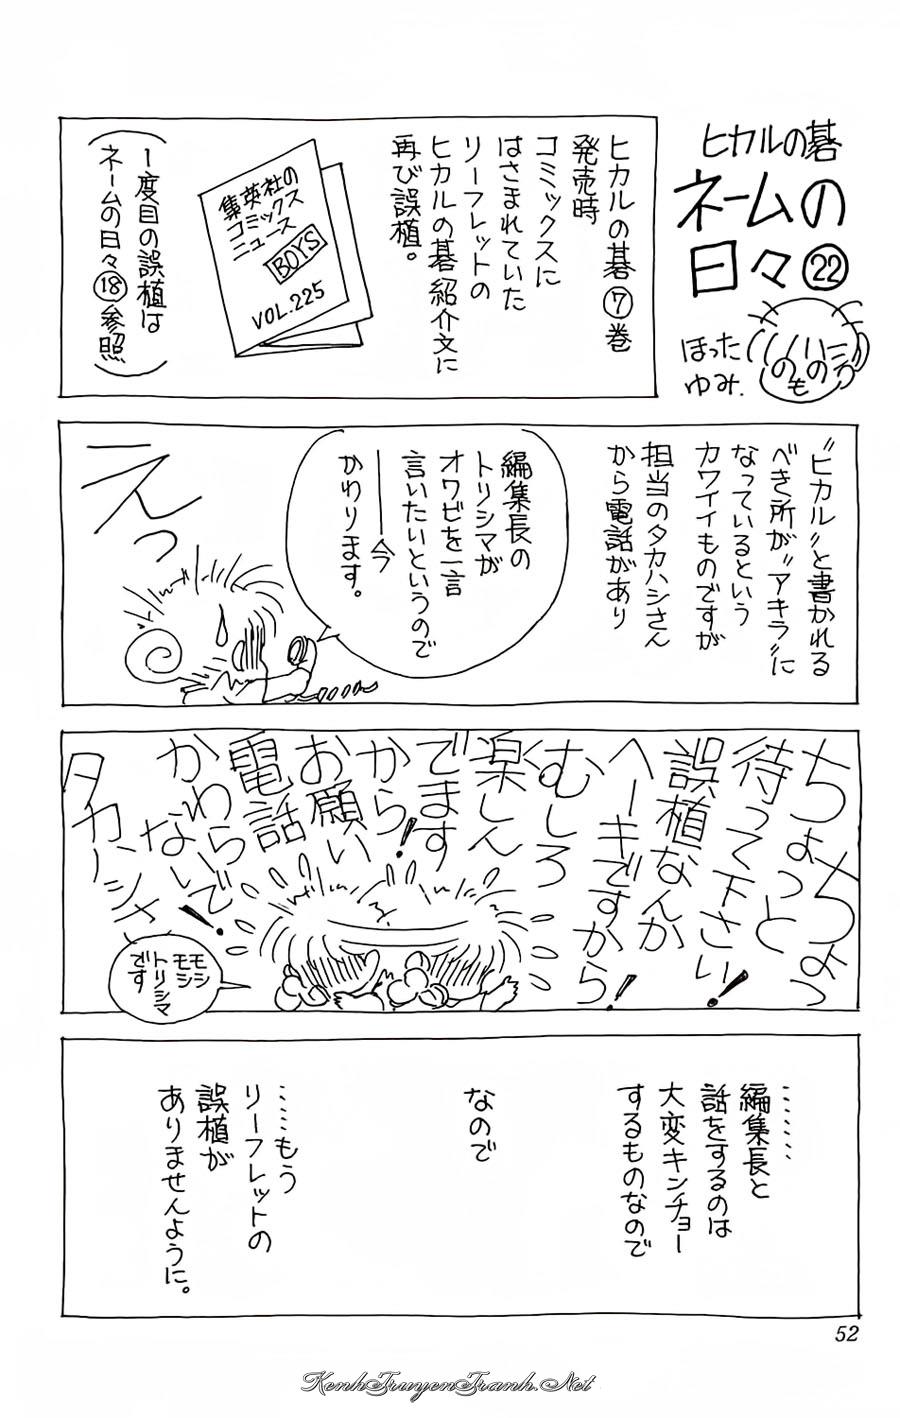 ヒカルの碁
ネームの
日々㉒
ほった
ゆみ.
ヒカルの碁⑦巻
発売時
コミックスに
はさまれていた
リーフレットの
ヒカルの碁紹介文に
再び誤植。
集英社の
コミックス
ニュース
BOYS
VOL.225
(1度目の誤植は
ネームの日々⑱参照)
〝ヒカル〟と書かれる
べき所が〝アキラ〟に
なっているという
カワイイものですが
担当のタカハシさん
から電話があり
編集長の
トリシマが
オワビを一言
言いたいというので
――今
かわります。
えっ
ちょっちょっ
ちょっと
待って下さい!
誤植なんか
ヘーキですから!
むしろ
楽しん
でます
から!
お願い
電話
かわらないで!
タカハシさ
モシ
モシ
トリシマ
です
……
編集長と
話をするのは
大変キンチョー
するものなので
なので
……もう
リーフレットの
誤植が
ありませんように。
52
KenhTruyenTranh.Net